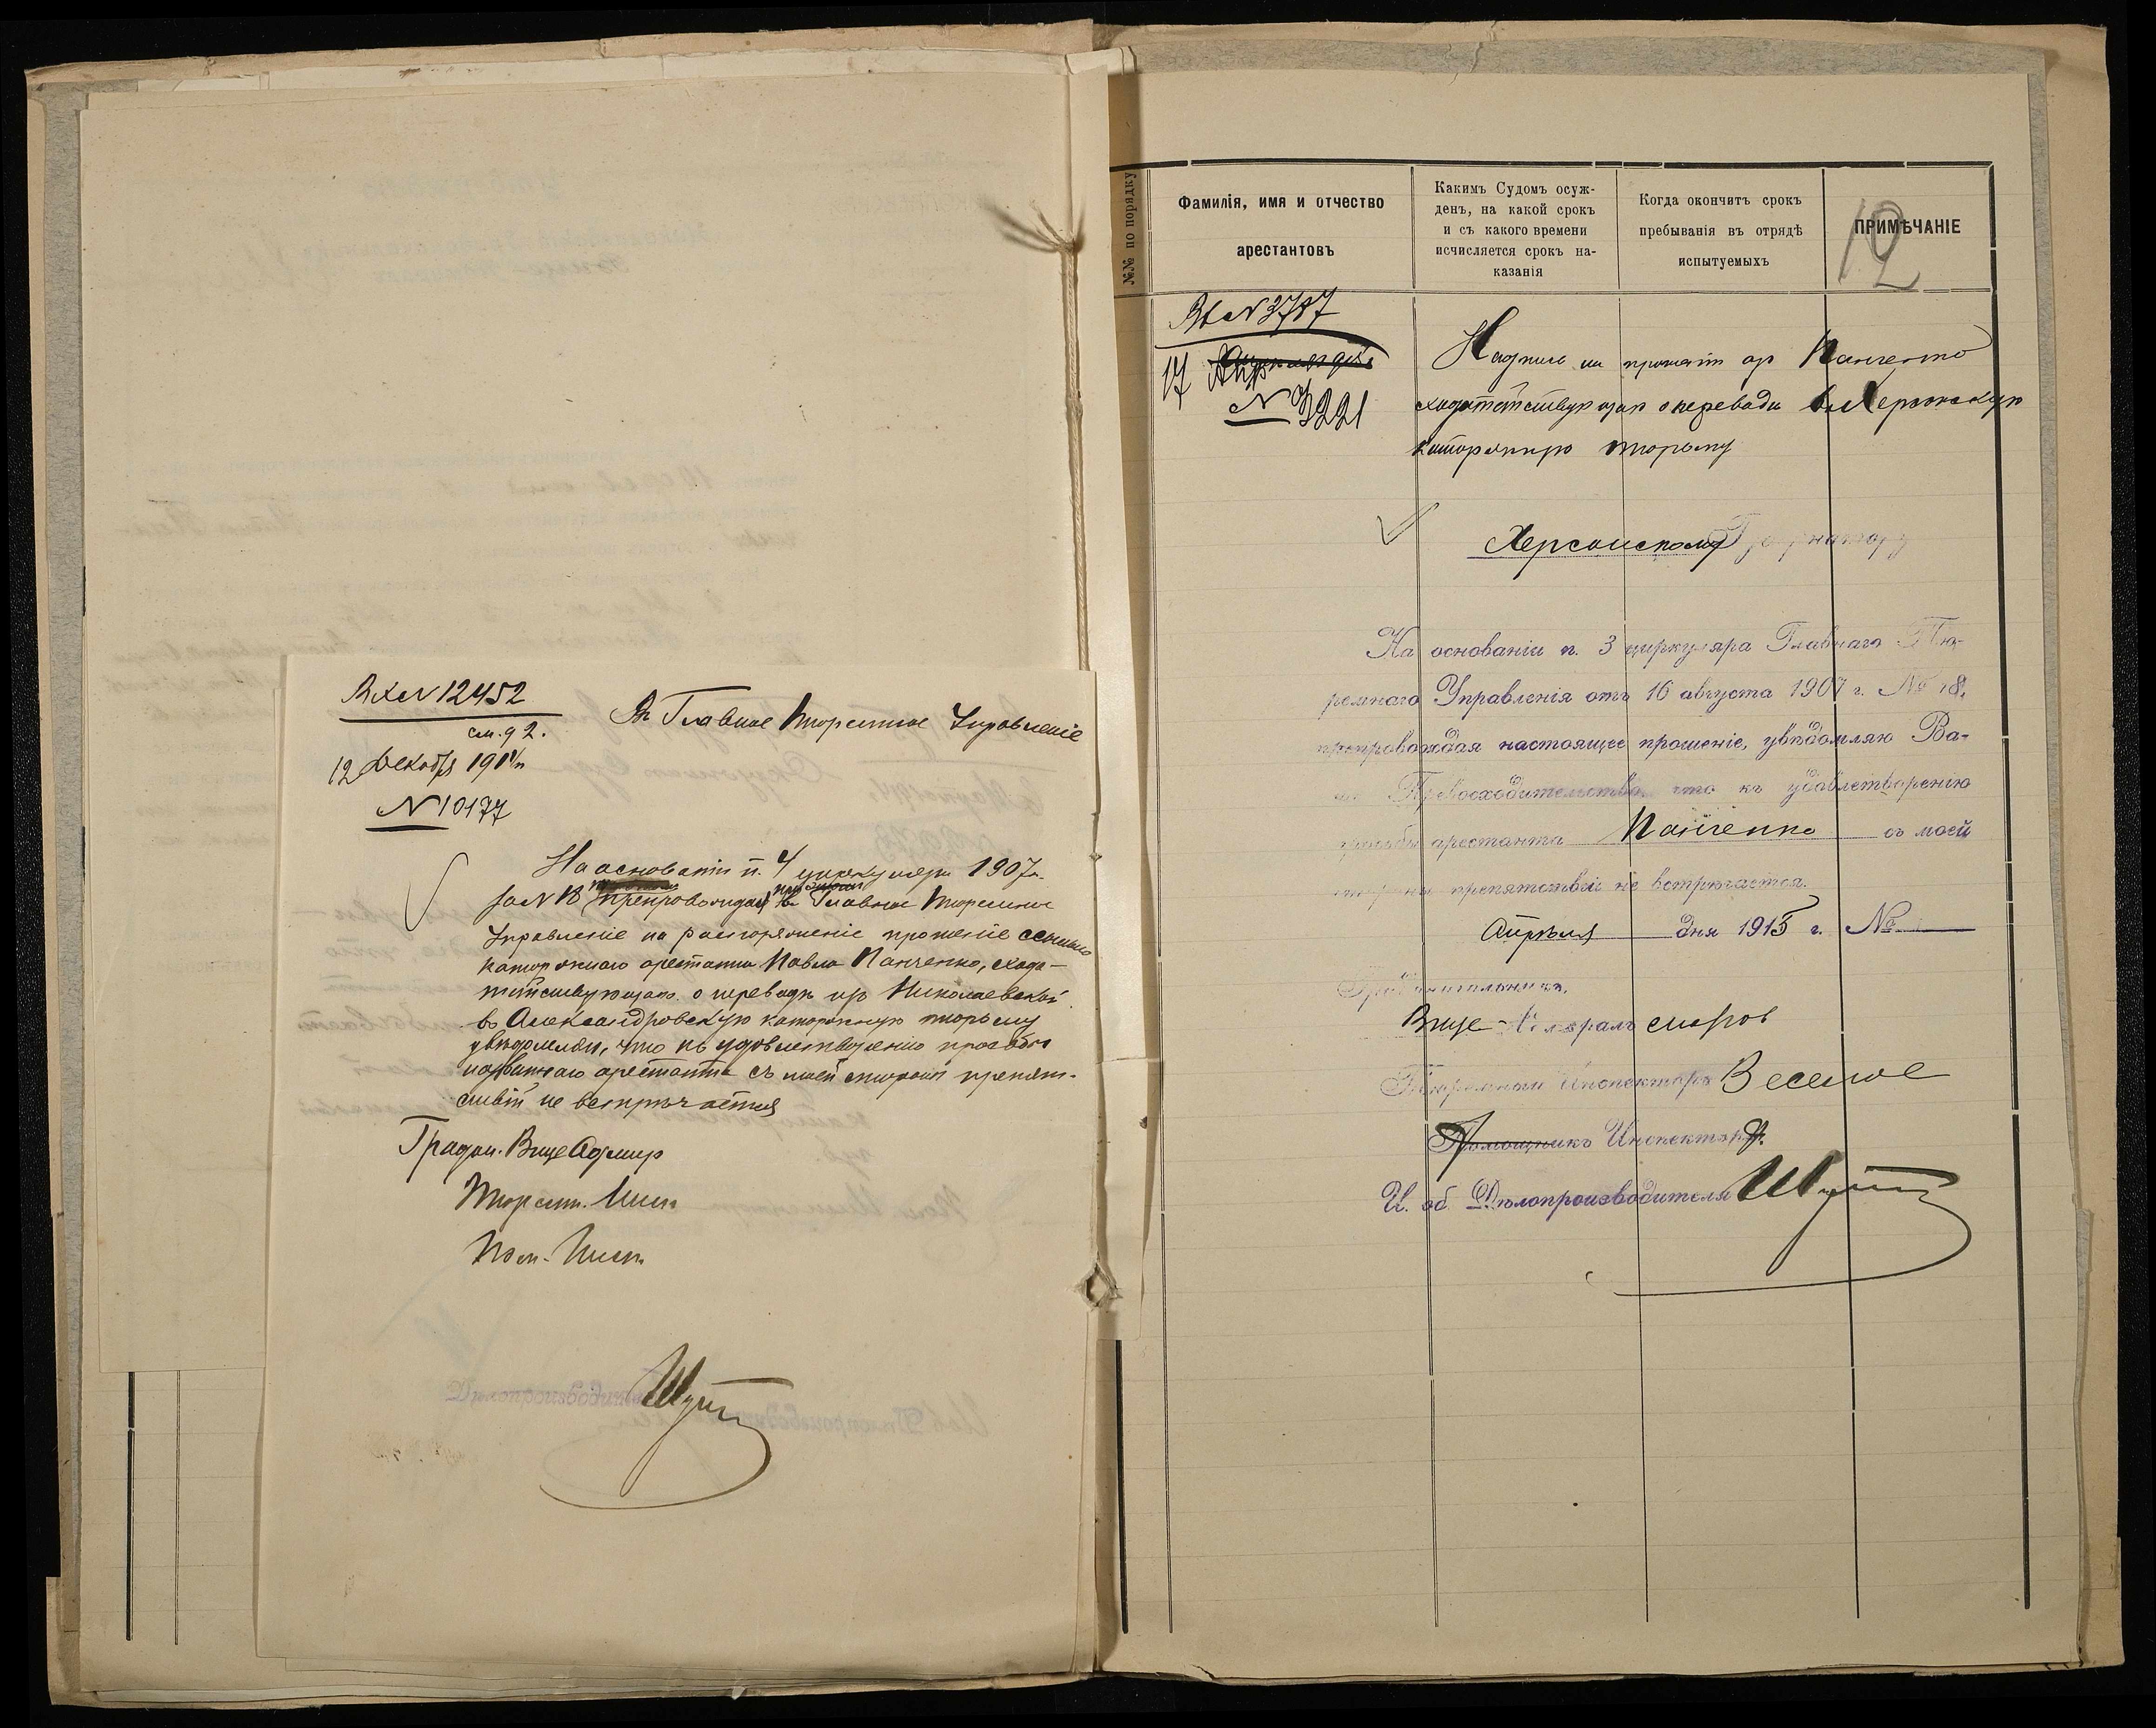 Вх № 12452
см. 92.
12 Декабря 191
№ 10177
Въ Главное Тюремное Управленіе
На основаніи п. 4 циркуляра 1907 г.
за № 18 препровождая въ Главное Тюремное
Управленіе на распоряженіе прошеніе ссыльно
каторжнаго арестанта Павла Панченко, хода-
тайствующаго о переводѣ изъ Николаевской
въ Александровскую каторжную тюрьму
увѣдомляю, что къ удовлетворенію просьбы
названнаго арестанта съ моей стороны препят-
ствій не встрѣчается
Градон. Вице Адмир
Тюремн. Инсп
Пом. Инсп
№№ по порядку
Фамилія, имя и отчество
арестантовъ
Какимъ Судомъ осуж-
денъ, на какой срокъ
и съ какого времени
исчисляется срокъ на-
казанія
Когда окончитъ срокъ
пребыванія въ отрядѣ
испытуемыхъ
ПРИМѢЧАНІЕ
12
Вх № 3787
17 Апр
№ 3221
Надпись на прошеніи ар Панченко
ходатайствующаго о переводѣ въ Херсонскую
каторжную тюрьму
Херсонскому Губернатору
На основаніи п. 3 циркуляра Главнаго Тю-
ремнаго Управленія отъ 16 августа 1907 г. № 18,
препровождая настоящее прошеніе, увѣдомляю Ва-
ше Превосходительство, что къ удовлетворенію
просьбы арестанта Панченко съ моей
стороны препятствій не встрѣчается.
Апрѣля дня 1915 г. №
Градоначальникъ,
Вице-Адмиралъ
Тюремный Инспекторъ
Помощникъ Инспектора
И. об. Дѣлопроизводителя